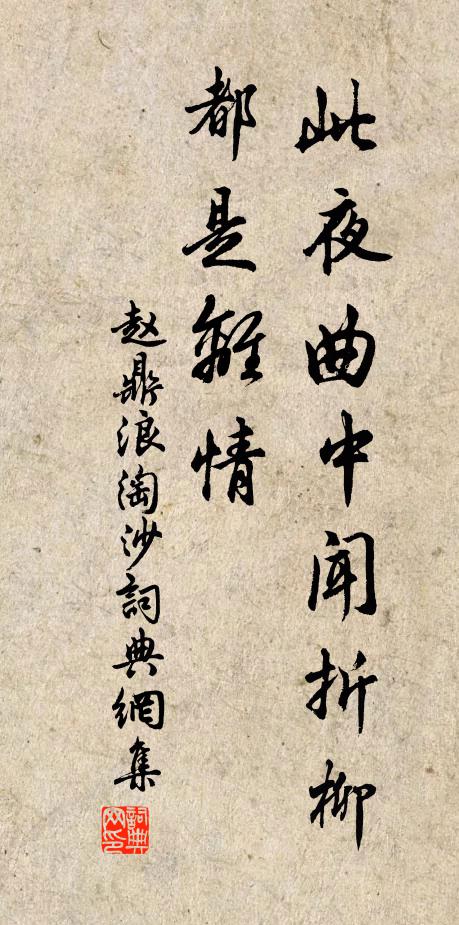 此夜曲中闻折柳
都是離情
赵鼎浪淘沙詞典網集
詞典
网印